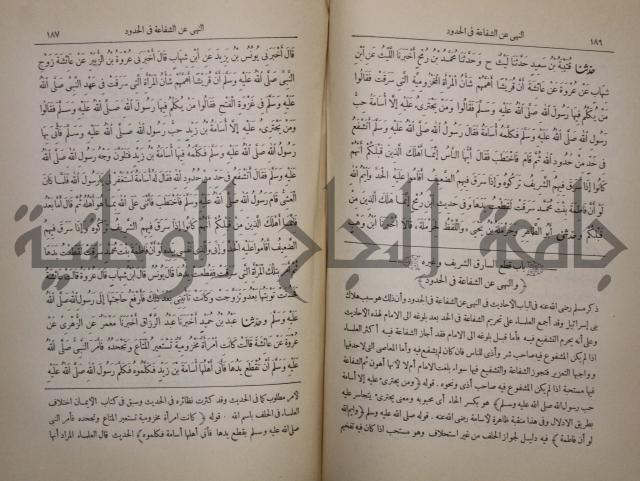 ١٨٦ النهى عن الشفاعة فى الحدود
حدثنا قتيبة بن سعيد حدثنا ليث ح وحدثنا محمد بن رمح أخبرنا الليث عن ابن
شهاب عن عروة عن عائشة أن قريشا أهمهم شأن المرأة المخزومية التى سرقت فقالوا
من يكلم فيها رسول الله صلى الله عليه وسلم فقالوا ومن يجترئ عليه إلا أسامة حب
رسول الله صلى الله عليه وسلم فكلمه أسامة فقال رسول الله صلى الله عليه وسلم أتشفع
فى حد من حدود الله ثم قام فاختطب فقال أيها الناس إنما أهلك الذين قبلكم أنهم
كانوا إذا سرق فيهم الشريف تركوه وإذا سرق فيهم الضعيف أقاموا عليه الحد وايم الله
لو أن فاطمة بنت محمد سرقت لقطعت يدها وفى حديث ابن رمح إنما هلك الذين من
قبلكم وحدثنى أبو الطاهر وحرملة بن يحيى واللفظ لحرملة قالا أخبرنا ابن وهب
باب قطع السارق الشريف وغيره
والنهى عن الشفاعة فى الحدود
ذكر مسلم رضى الله عنه فى الباب الأحاديث فى النهى عن الشفاعة فى الحدود وأن ذلك هو سبب هلاك
بنى إسرائيل وقد أجمع العلماء على تحريم الشفاعة فى الحد بعد بلوغه الى الامام لهذه الأحاديث
وعلى أنه يحرم التشفيع فيه فأما قبل بلوغه الى الامام فقد أجاز الشفاعة فيه أكثر العلماء
اذا لم يكن المشفوع فيه صاحب شر وأذى للناس فان كان لم يشفع فيه وأما المعاصى التى لاحد فيها
وواجبها التعزير فتجوز الشفاعة والتشفيع فيها سواء بلغت الامام أم لا لأنها أهون ثم الشفاعة
فيها مستحبة اذا لم يكن المشفوع فيه صاحب أذى ونحوه . قوله ﴿ومن يجترئ عليه إلا أسامة
حب رسول الله صلى الله عليه وسلم﴾ هو بكسر الحاء أى محبوبه ومعنى يجترئ يتجاسر عليه
بطريق الادلال وفى هذا منقبة ظاهرة لأسامة رضى الله عنه . قوله صلى الله عليه وسلم ﴿وايم الله
لو أن فاطمة﴾ فيه دليل لجواز الحلف من غير استحلاف وهو مستحب اذا كان فيه تفخيم
النهى عن الشفاعة فى الحدود ١٨٧
قال أخبرنى يونس بن يزيد عن ابن شهاب قال أخبرنى عروة بن الزبير عن عائشة زوج
النبى صلى الله عليه وسلم أن قريشا أهمهم شأن المرأة التى سرقت فى عهد النبى صلى الله
عليه وسلم فى غزوة الفتح فقالوا من يكلم فيها رسول الله صلى الله عليه وسلم فقالوا
ومن يجترئ عليه إلا أسامة بن زيد حب رسول الله صلى الله عليه وسلم فأتى بها
رسول الله صلى الله عليه وسلم فكلمه فيها أسامة بن زيد فتلون وجه رسول الله صلى الله
عليه وسلم فقال أتشفع فى حد من حدود الله فقال له أسامة استغفر لى يا رسول الله فلما كان
العشى قام رسول الله صلى الله عليه وسلم فاختطب فأثنى على الله بما هو أهله ثم قال أما بعد
فإنما أهلك الذين من قبلكم أنهم كانوا إذا سرق فيهم الشريف تركوه وإذا سرق فيهم
الضعيف أقاموا عليه الحد وإنى والذى نفسى بيده لو أن فاطمة بنت محمد سرقت لقطعت يدها
ثم أمر بتلك المرأة التى سرقت فقطعت يدها قال يونس قال ابن شهاب قال عروة قالت عائشة
فحسنت توبتها بعد وتزوجت وكانت تأتينى بعد ذلك فأرفع حاجتها إلى رسول الله صلى الله
عليه وسلم وحدثنا عبد بن حميد أخبرنا عبد الرزاق أخبرنا معمر عن الزهرى عن
عروة عن عائشة قالت كانت امرأة مخزومية تستعير المتاع وتجحده فأمر النبى صلى الله
عليه وسلم أن تقطع يدها فأتى أهلها أسامة بن زيد فكلموه فكلم رسول الله صلى الله عليه
لأمر مطلوب كما فى الحديث وقد كثرت نظائره فى الحديث وسبق فى كتاب الأيمان اختلاف
العلماء فى الحلف باسم الله . قوله ﴿كانت امرأة مخزومية تستعير المتاع وتجحده فأمر النبى
صلى الله عليه وسلم بقطع يدها فأتى أهلها أسامة فكلموه﴾ الحديث قال العلماء المراد أنها
جامعة النجاح الوطنية